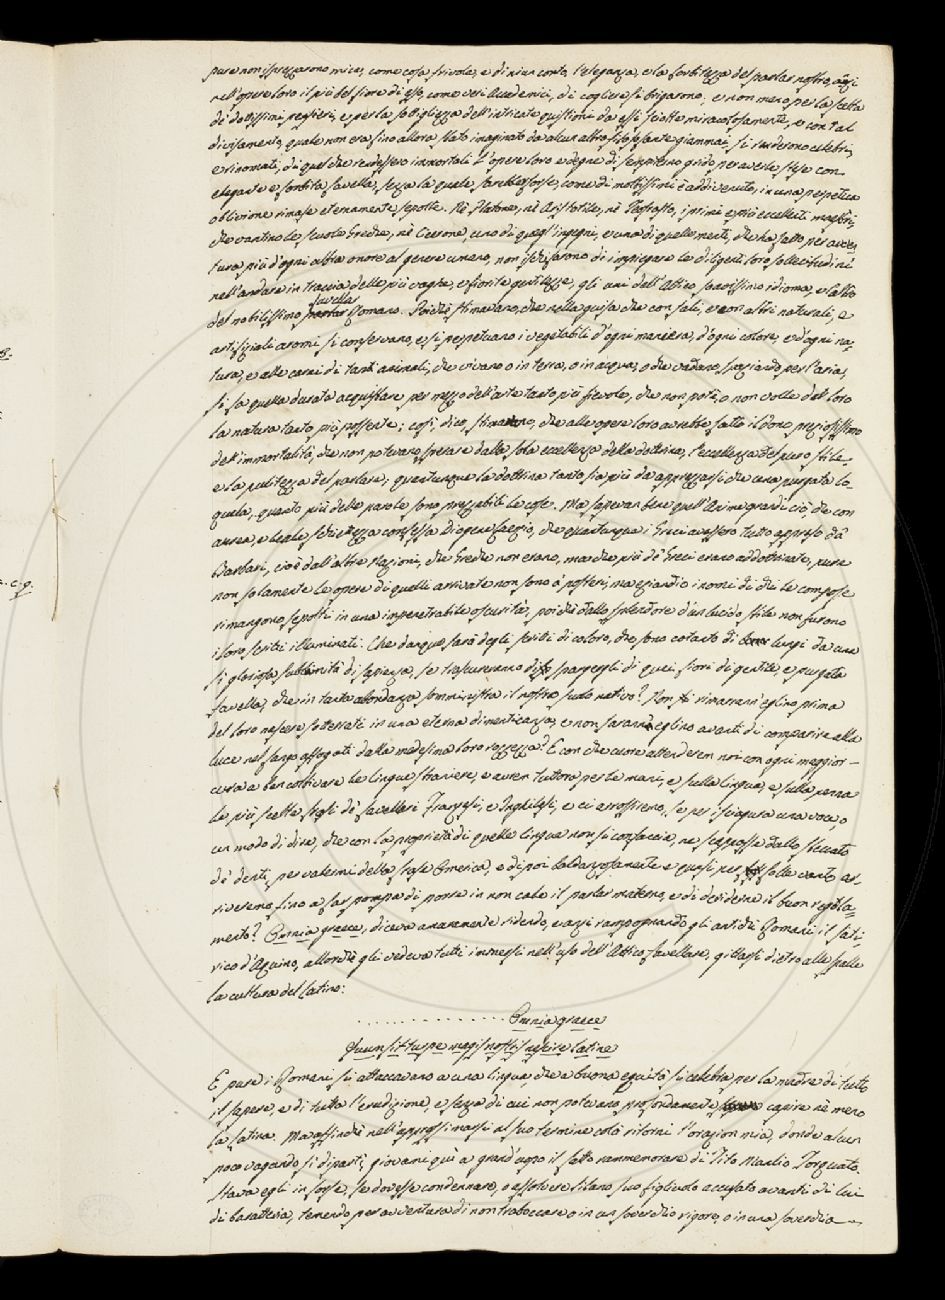 pure non isprezzarono mica, come cosa frivola, e di niun conto, l'eleganza, e la forbitezza del parlar nostro, anzi
nell'opere loro il più bel fiore di esso, come veri Accademici, di cogliere si brigarono; e non meno per la scelta
de' dottissimi pensieri, e per la sottigliezza dell'intricate quistioni da essi sciolte miracolosamente, e con tal
divisamento, quale non era fino allora stato imaginato da alcun altro filosofante giammai, si renderono celebri,
e rinomati, di quel che rendessero immortali l'opere loro e degne di sempiterno grido per averle stese con
elegante e forbita favella, senza la quale sarebber forse, come di moltissimi è addivenuto, in una perpetua
oblivione rimase eternamente sepolte. Nè Platone, nè Aristotile, nè Teofrasto, i primi e più eccellenti maestri,
che vantino le scuole Greche, nè Cicerone, uno di quegl'ingegni, e una di quelle menti, che ha fatto per avven-
tura più d'ogni altra onore al genere umano, non ischifarono di impiegare le diligenti loro sollecitudini
nell'andare in traccia delle più vaghe, e fiorite gentilezze, gli uni dell'Attico soavissimo idioma, e l'altro
favellar
del nobilissimo Romano. Poichè stimavano, che nella guisa che con sali, e con altri naturali, e
artifiziali aromi si conservano, e si perpetuano i vegetabili d'ogni maniera, d'ogni colore, e d'ogni na-
tura, e alle carni di tanti animali, che vivano o in terra, o in acqua, o che vadano spaziando per l'aria,
si fa quella durata acquistare per mezzo dell'arte tanto più fievole, che non potè, o non volle dal loro
la natura tanto più possente; così, dico, stimavano, che alle opere loro avrebbe fatto il dono preziosissimo
dell'immortalità, che non potevano sperare dalla sola eccellenza della dottrina, l'eccellenza del puro stile,
e la pulitezza del parlare; quantunque la dottrina tanto sia più da apprezzarsi che una purgata lo-
quela, quanto più delle parole sono prezzabili le cose. Ma sapevan bene quell'Anime grandi ciò, che con
aurea, e leale schiettezza confessa Diogene Laerzio, che quantunque i Greci avessero tutto appreso da'
Barbari, cioè dall'altre Nazioni, che Greche non erano, ma che più de' Greci erano addottrinate, pure
non solamente le opere di quelli arrivate non sono a' posteri, ma eziandio i nomi di chi le compose
rimangono sepolti in una impenetrabile oscurità, poichè dallo splendore d'un lucido stile non furono
i loro scritti illuminati. Che dunque sarà degli scritti di coloro, che sono cotanto di lungi da una
sì gloriosa sublimità di sapienza, se trascureranno di spargergli di quei fiori di gentile, e purgata
favella, che in tanta abondanza somministra il nostro suolo nativo? Non rimarrann'eglino prima
del loro nascere sotterrati in una eterna dimenticanza, e non saranno eglino avanti di comparire alla
luce nel fango affogati dalla medesima loro rozzezza? E con che cuore attenderem noi con ogni maggior
cura a ben coltivare le lingue straniere, e avrem tuttora per le mani, e sulla lingua, e sulla penna
le più scelte frasi de' favellari Franzesi, e Inghilesi, e ci arrossiremo, se per isciagura una voce, o
un modo di dire, che con la proprietà di quelle lingue non si confaccia, ne scappasse dallo steccato
de' denti, per valermi della frase Omerica, e di poi baldanzosamente e quasi per folle vanto ar-
riveremo fino a far pompa di porre in non cale il parlar materno, e di deridere il buon regola-
mento? Omnia graece, diceva amaramente ridendo, e anzi rampognando gli antichi Romani il Sati-
rico d'Aquino, allorchè gli vedeva tutti immersi nell'uso dell'Attico favellare, gittarsi dietro alle spalle
la cultura del Latino:
. . . . . . . . . . . . . . . Omnia graece
Quum sit turpe magis nostris nescire latine
E pure i Romani si attaccavano a una lingua, che a buona equità si celebra per la madre di tutto
il sapere, e di tutta l'erudizione, e senza di cui non potevano profondamente capire nè meno
la Latina. Ma affinchè nell'approssimarsi al suo termine colà ritorni l'orazion mia, donde alcun
poco vagando si dipartì, giovami quì a grand'uopo il fatto rammemorare di Tito Manlio Torquato.
Stava egli in forse, se dovesse condennare, o assolvere Silano suo figliuolo accusato avanti di lui
di baratteria, temendo per avventura di non traboccare o in un soverchio rigore, o in una soverchia